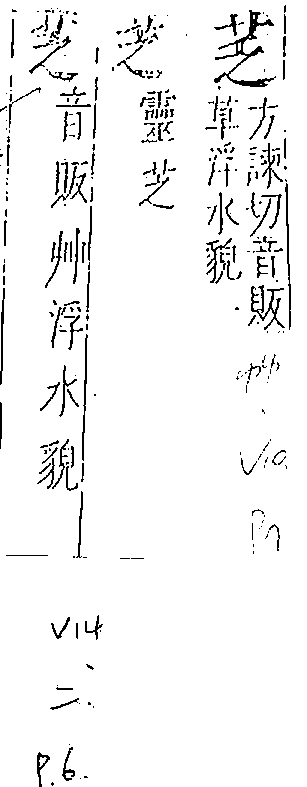 芝
方諫切音販
草浮水貌
艸
芝
靈芝
芝
音販艸浮水貌
V14
二
P.6.